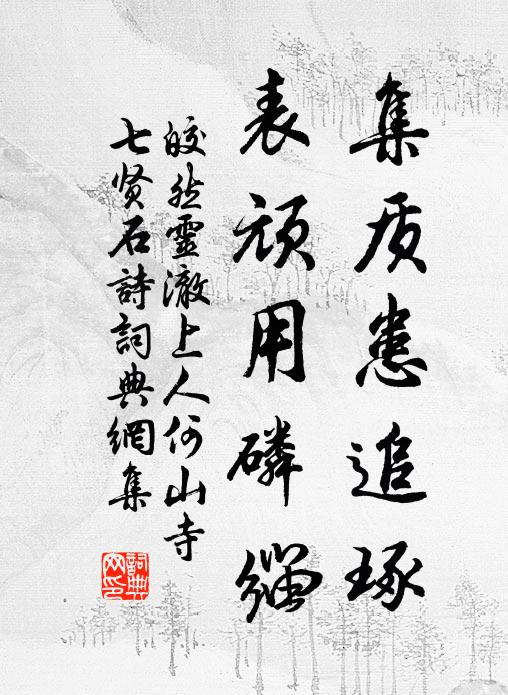 集质患追琢
表顽用磷缁
皎然靈澈上人何山寺
七贤石詩詞典網集
詞典
网印